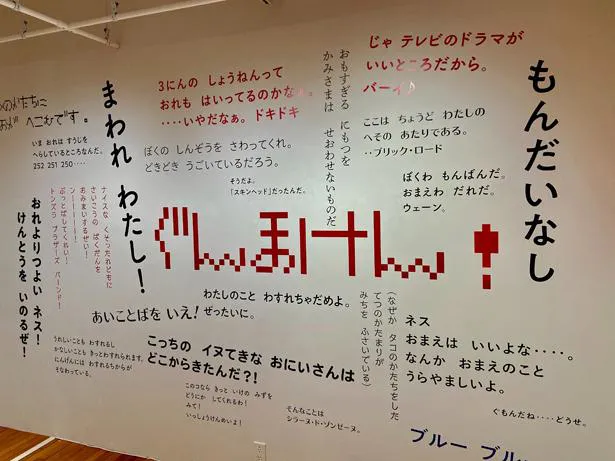 じゃ テレビのドラマが
いいところだから。
バーイ♪
おもすぎる にもつを
かみさまは せおわせないものだ
もんだいなし
3にんの しょうねんって
おれも はいってるのかな
‥‥いやだなぁ。ドキドキ
まわれ わたし!
へこむです。
いま おれは すうじを
へらしているところなんだ。
252 251 250‥‥
ぼくの しんぞうを さわってくれ。
どきどき うごいているだろう。
そうだよ。
「スキンヘッド」だったんだ。
ここは ちょうど わたしの
へその あたりである。
‥ブリック・ロード
ぼくわ もんばんだ。
おまえわ だれだ。
ウェーン。
ナイスな くそったれどもに
さいこうの ばくだんを
おみまいするぜい!
ンーーーーー!
ぶっとばしてくれい!
トンズラ ブラザーズ バーンド!
おれよりつよい ネス!
けんとうを いのるぜ!
ぐんまけん!
わたしのこと わすれちゃだめよ。
ぜったいに。
あいことばを いえ!
(なぜか タコのかたちをした
てつのかたまりが
みちを ふさいでいる)
ネス
おまえは いいよな‥‥。
なんか おまえのこと
うらやましいよ。
うれしいことも わすれるし
かなしいことも きっとわすれられます。
にんげんには わすれるちからが
そなわっている。
こっちの イヌてきな おにいさんは
どこからきたんだ?!
このコなら きっと いけの みずを
どうにか してくれるわ!
みて!
いっしょうけんめいよ!
そんなことは
シラーヌ・ド・ゾンゼーヌ。
ぐもんだね‥‥どうせ。
ブルー ブル